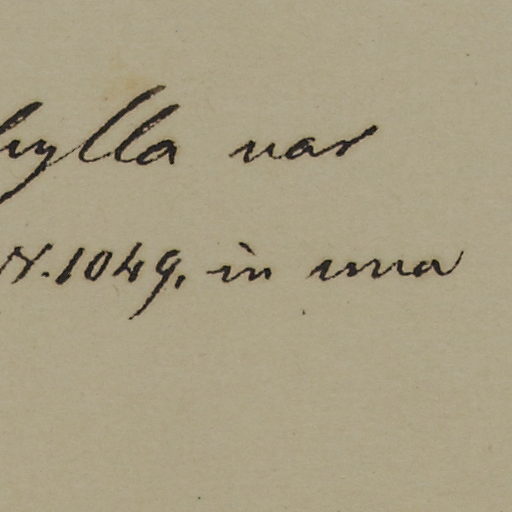 hylla var
N. 1049, in una